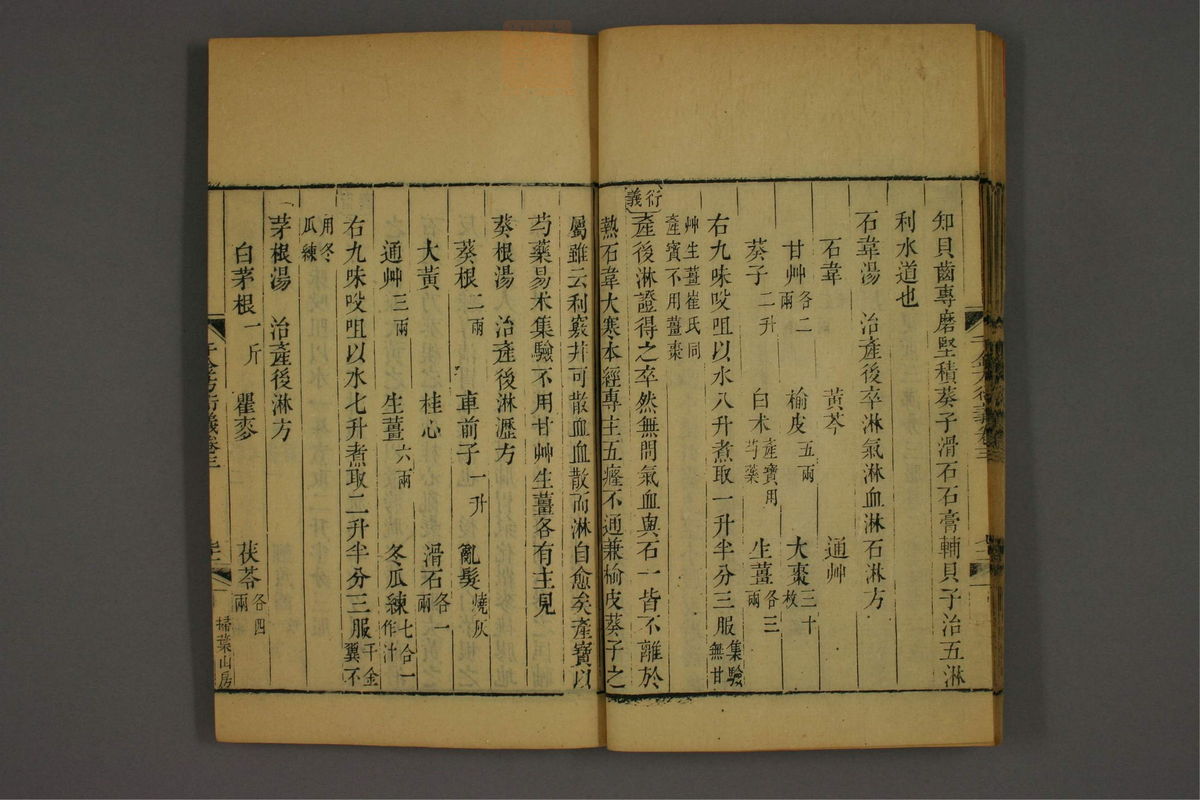 知貝齒專磨堅積葵子滑石石膏輔貝子治五淋
利水道也
石韋湯　治產後卒淋氣淋血淋石淋方
石韋　黃芩　通艸
甘艸各二兩　榆皮五兩　大棗三十枚
葵子二升　白朮產寶用芍藥　生薑各三兩
右九味㕮咀以水八升煮取一升半分三服集驗無甘
艸生薑崔氏同產寶不用薑棗
衍義
產後淋證得之卒然無問氣血與石一皆不離於
熱石韋大寒本經專主五癃不通兼榆皮葵子之
屬雖云利竅并可散血血散而淋自愈矣產寶以
芍藥易朮集驗不用甘艸生薑各有主見
葵根湯　治產後淋瀝方
葵根二兩　車前子一升　亂髮燒灰
大黃　桂心　滑石各一兩
通艸三兩　生薑六兩　冬瓜練七合一作汁
右九味㕮咀以水七升煮取二升半分三服千金翼不
用冬瓜練
茅根湯　治產後淋方
白茅根一斤　瞿麥　茯苓各四兩
千金方衍義卷三
掃葉山房